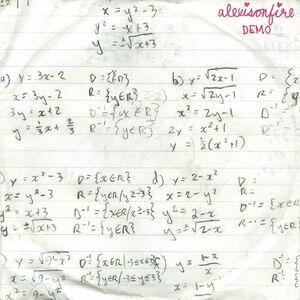 x = y² - 3
alexisonfire
DEMO
y² = x + 3
y = ±√x+3
a) y = 3x - 2 D = {
x = 3y - 2 R = {y∈R}
3y = x + 2 D⁻¹ = {x∈R}
y = ⅓x + ⅔ R⁻¹ = {y∈R}
b) y = √2x-1 D = {
x = √2y-1 R = {
x² = 2y - 1 D⁻¹
2y = x² + 1 R⁻¹
y = ½(x² + 1)
y = x² - 3 D = {x∈R}
x = y² - 3 R = {y∈R/y≥-3}
y² = x + 3 D⁻¹ = {x∈R/x≥-3}
y = ±√x+3 R⁻¹ = {y∈R}
d) y = 2 - x² D =
x = 2 - y² R =
y² = 2 - x D⁻¹ = {
y = ±√2-x R⁻¹ = {
y = √9-x² D = {x∈R/-3≤x≤3}
x = √9-y² R⁻¹ = {y∈R/-3≤y≤3}
x² = 9 - y²
y = 1-x/x D
x = 1-y R